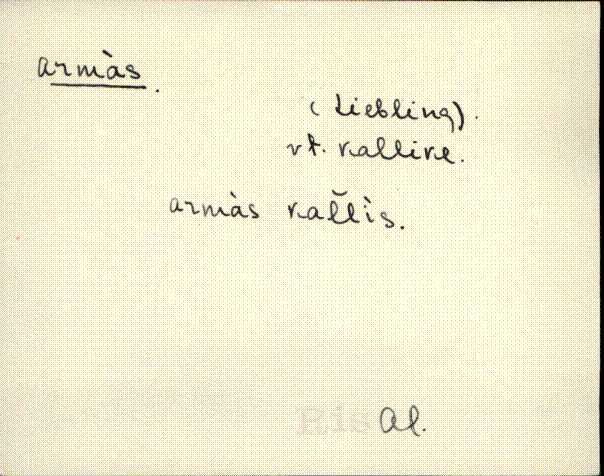 armàs.
(Liebling).
vt. kallike.
armàs kal̆lìs.
Ris Al.